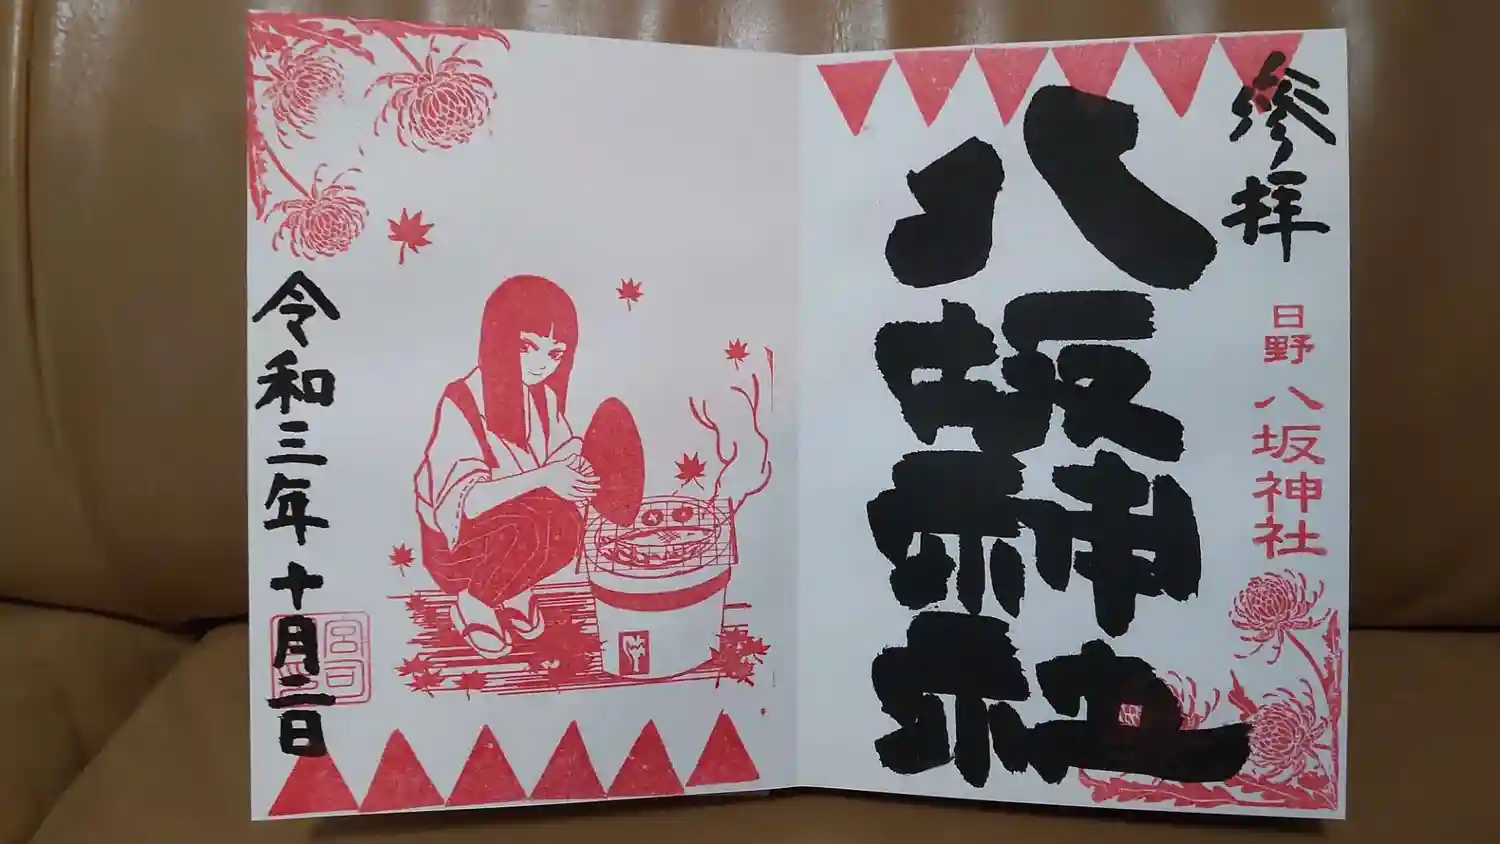 参拝
日野八坂神社
八坂神社
令和三年十月二日
宮司